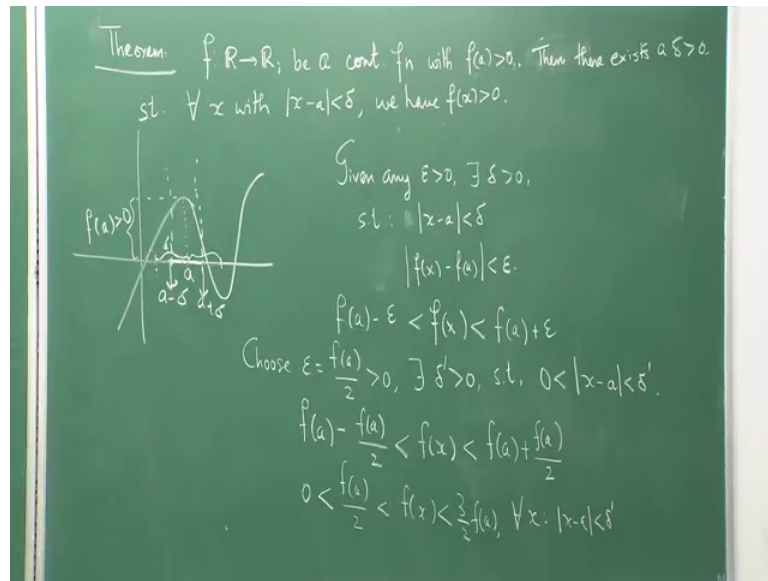 Theorem: f: R→R, be a cont fn with f(a)>0. Then there exists a δ>0
st. ∀ x with |x-a|<δ, we have f(x)>0.
Given any ε>0, ∃ δ>0,
st: |x-a|<δ
|f(x)-f(a)|<ε.
f(a)>0
a
a-δ a+δ
f(a)-ε < f(x) < f(a)+ε
Choose ε = f(a)/2 >0, ∃ δ'>0, s.t. 0<|x-a|<δ'.
f(a) - f(a)/2 < f(x) < f(a) + f(a)/2
0 < f(a)/2 < f(x) < 3/2 f(a), ∀ x: |x-a|<δ'